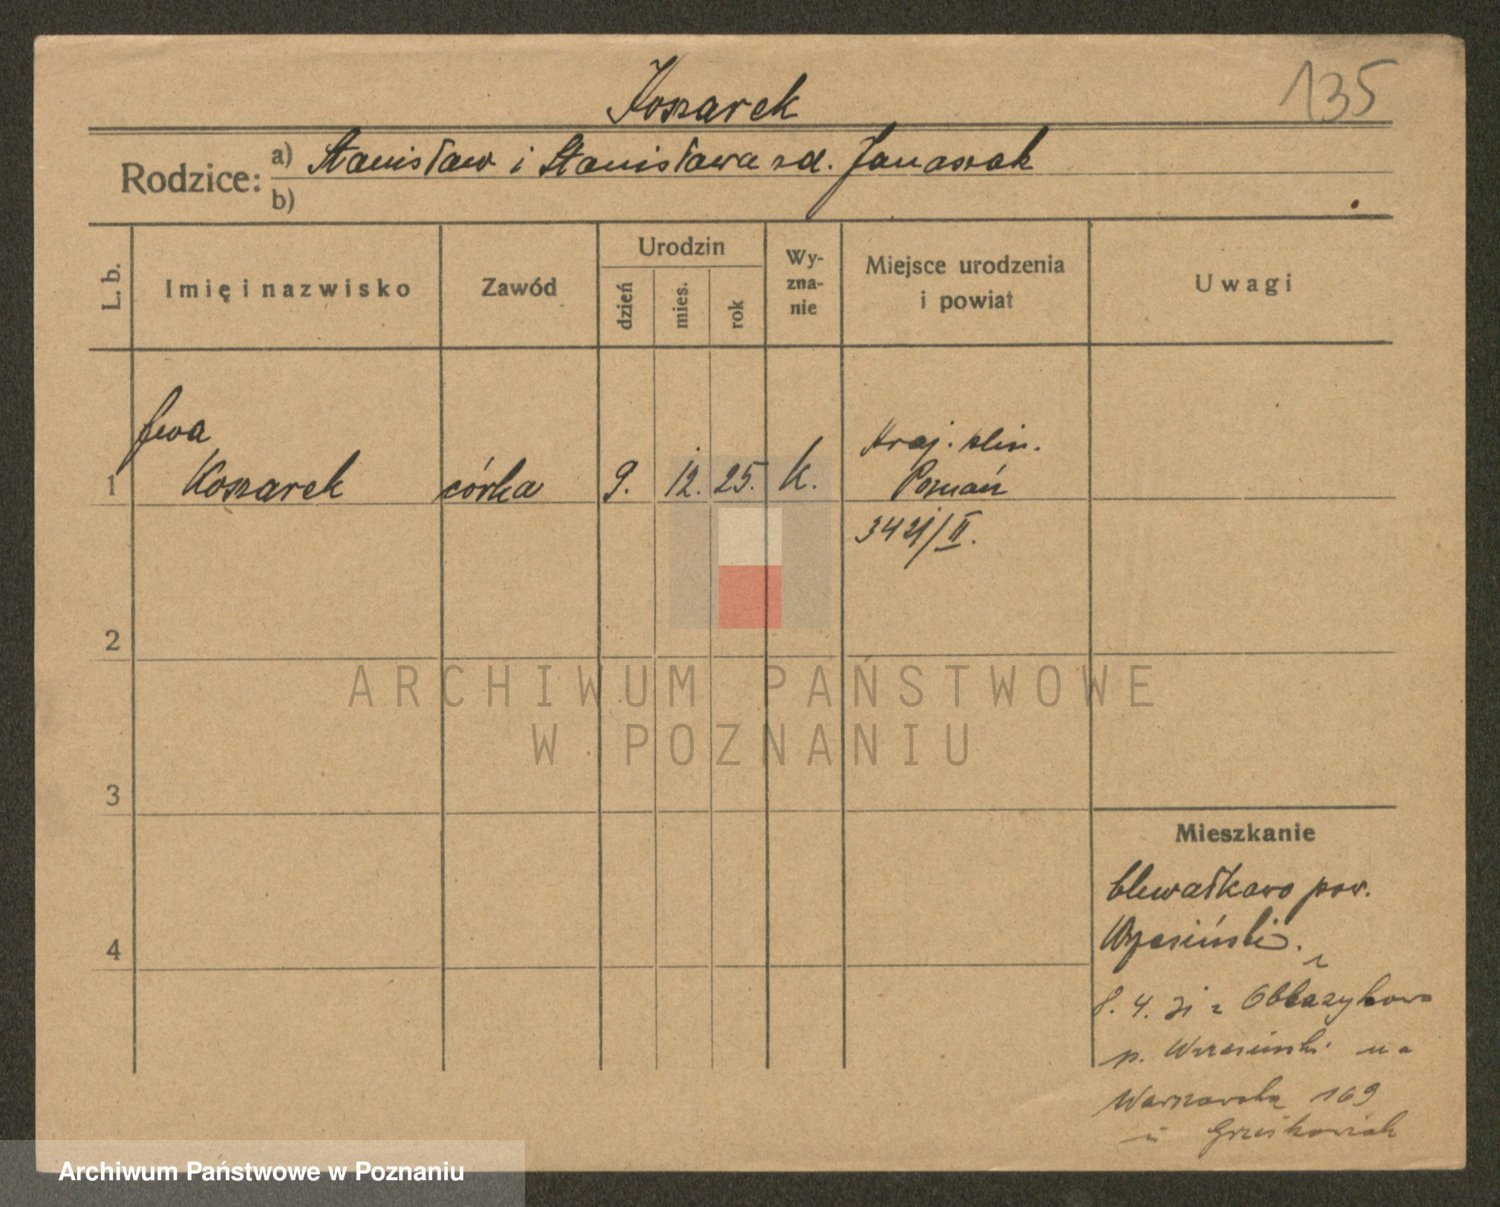 135
Koszarek
Rodzice: a) Stanisław i Stanisława zd. Janaszak
b)
L. b.
Imię i nazwisko
Zawód
Urodzin
dzień
mies.
rok
Wy-
zna-
nie
Miejsce urodzenia
i powiat
Uwagi
Ewa
Koszarek
1
córka
9.
12.
25.
k.
Kraj. klin.
Poznań
3421/II.
2
3
4
ARCHIWUM PAŃSTWOWE
W POZNANIU
Mieszkanie
pow.
Wrzesiński.
8. 4. 31 z
p. Wrzesiński na
Warszawska 169
u Grześkowiak
Archiwum Państwowe w Poznaniu